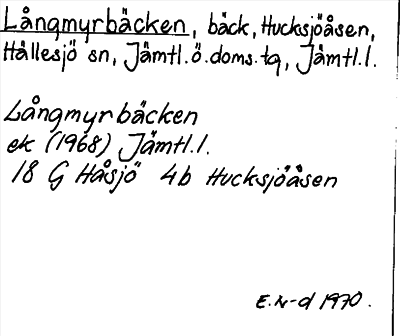 Långmyrbäcken, bäck, Hucksjöåsen,
Hällesjö sn, Jämtl.ö.doms.tg, Jämtl.l.
Långmyrbäcken
ek (1968) Jämtl.l.
18 G Håsjö 4b Hucksjöåsen
E.N-d 1970.